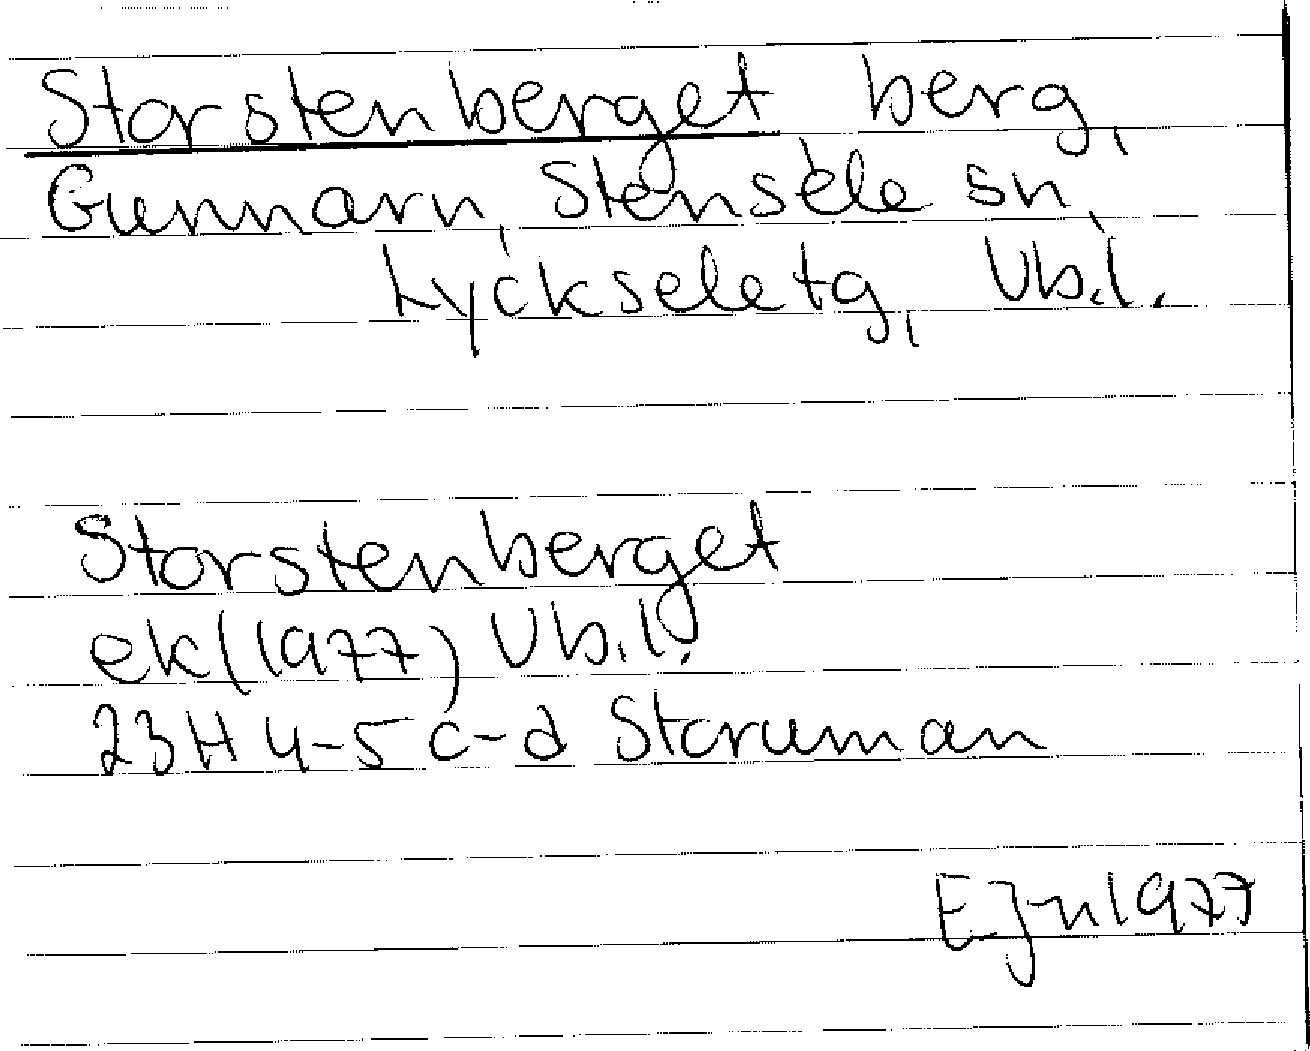 Storstenberget berg,
Gunnarn, Stensele sn,
Lyckseletg, Vb.l.
Storstenberget
ek(1977) Vb.l.
23H 4-5 c-d Storuman
EJn 1977